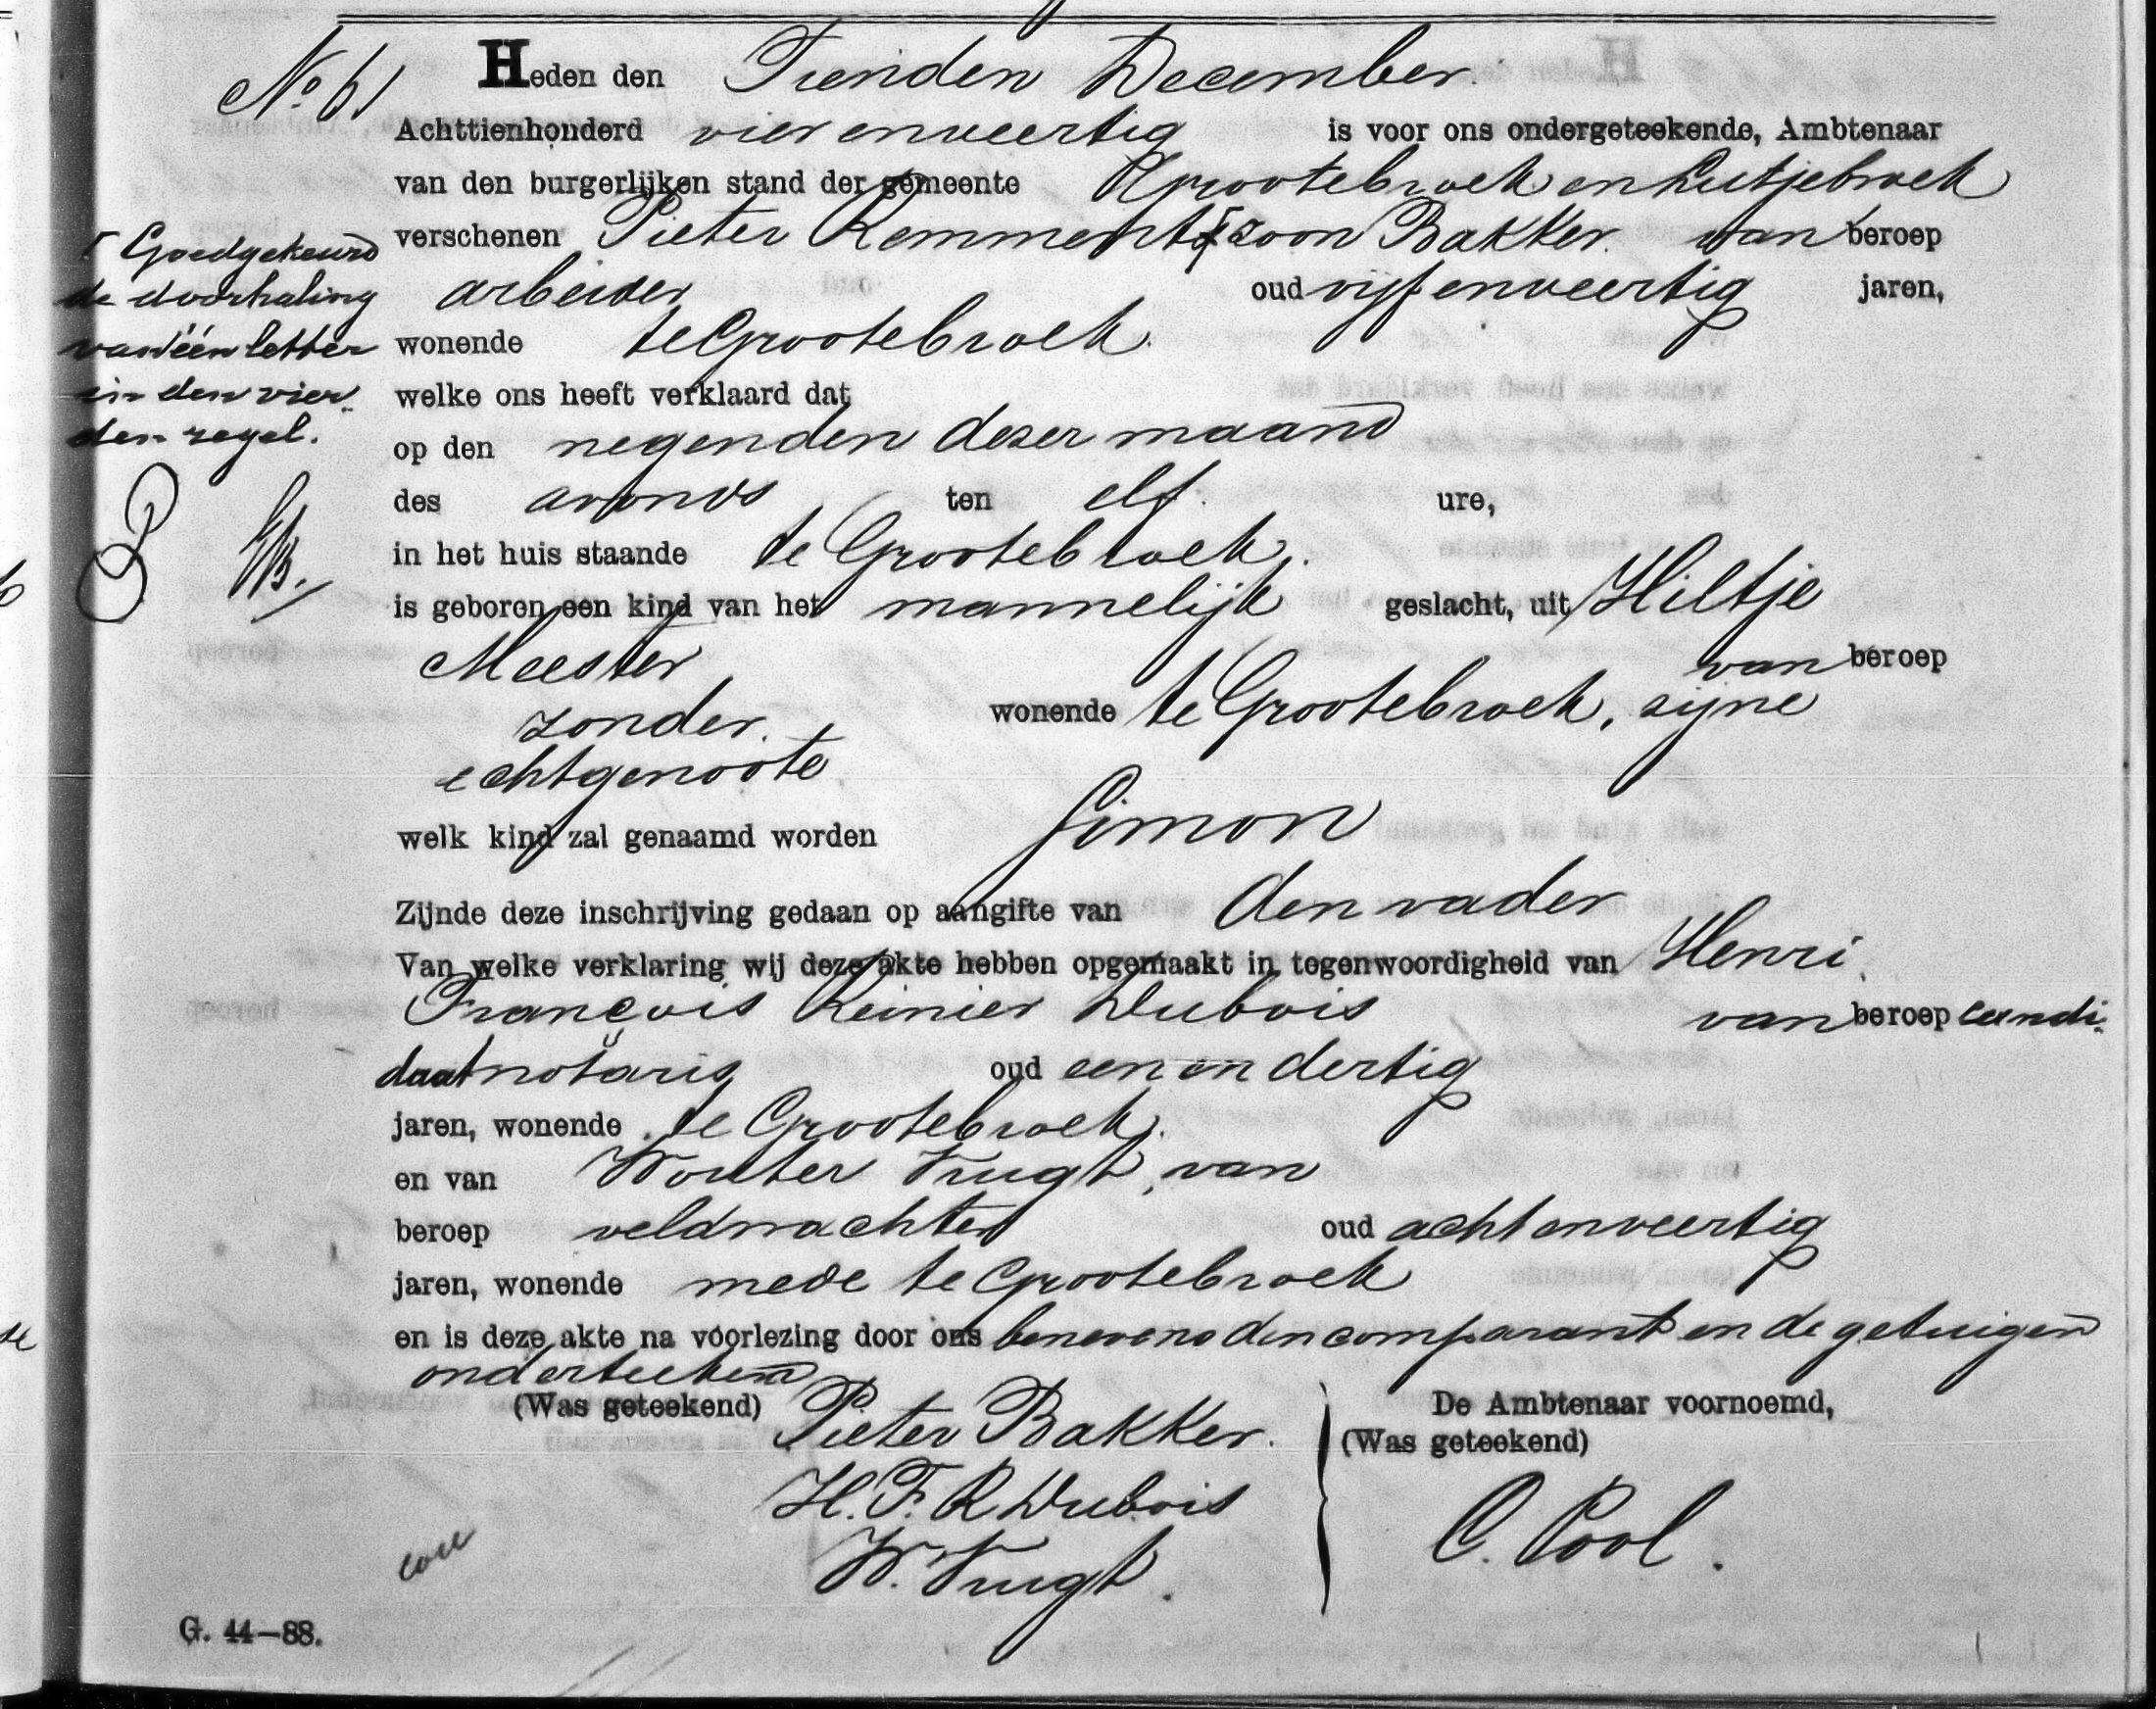 No 61
Heden den Tienden December.
Achttienhonderd vier en veertig is voor ons ondergeteekende, Ambtenaar
van den burgerlijken stand der gemeente Grootebroek en Lutjebroek
verschenen Pieter Remmert zoon Bakker. van beroep
arbeider oud vijf en veertig jaren,
wonende te Grootebroek.
welke ons heeft verklaard dat
op den negenden dezer maand
des avonds ten elf. ure,
in het huis staande te Grootebroek.
is geboren een kind van het mannelijk geslacht, uit Hiltje
Meester van beroep
zonder. wonende te Grootebroek, zijne
echtgenoote
welk kind zal genaamd worden Simon
Zijnde deze inschrijving gedaan op aangifte van den vader
Van welke verklaring wij deze akte hebben opgemaakt in tegenwoordigheid van Henri
François Reinier Dubois van beroep candi
daat notaris oud een en dertig
jaren, wonende te Grootebroek.
en van Wouter Vrugt, van
beroep veldwachter oud acht en veertig
jaren, wonende mede te Grootebroek
en is deze akte na voorlezing door ons benevens den comparant en de getuigen
onderteekend
(Was geteekend) Pieter Bakker.
H. F. R Dubois
W. Vrugt.
De Ambtenaar voornoemd,
(Was geteekend)
C. Pool.
Goedgekeurd
de doorhaling
van één letter
in den vier
den regel.
G. 44—88.